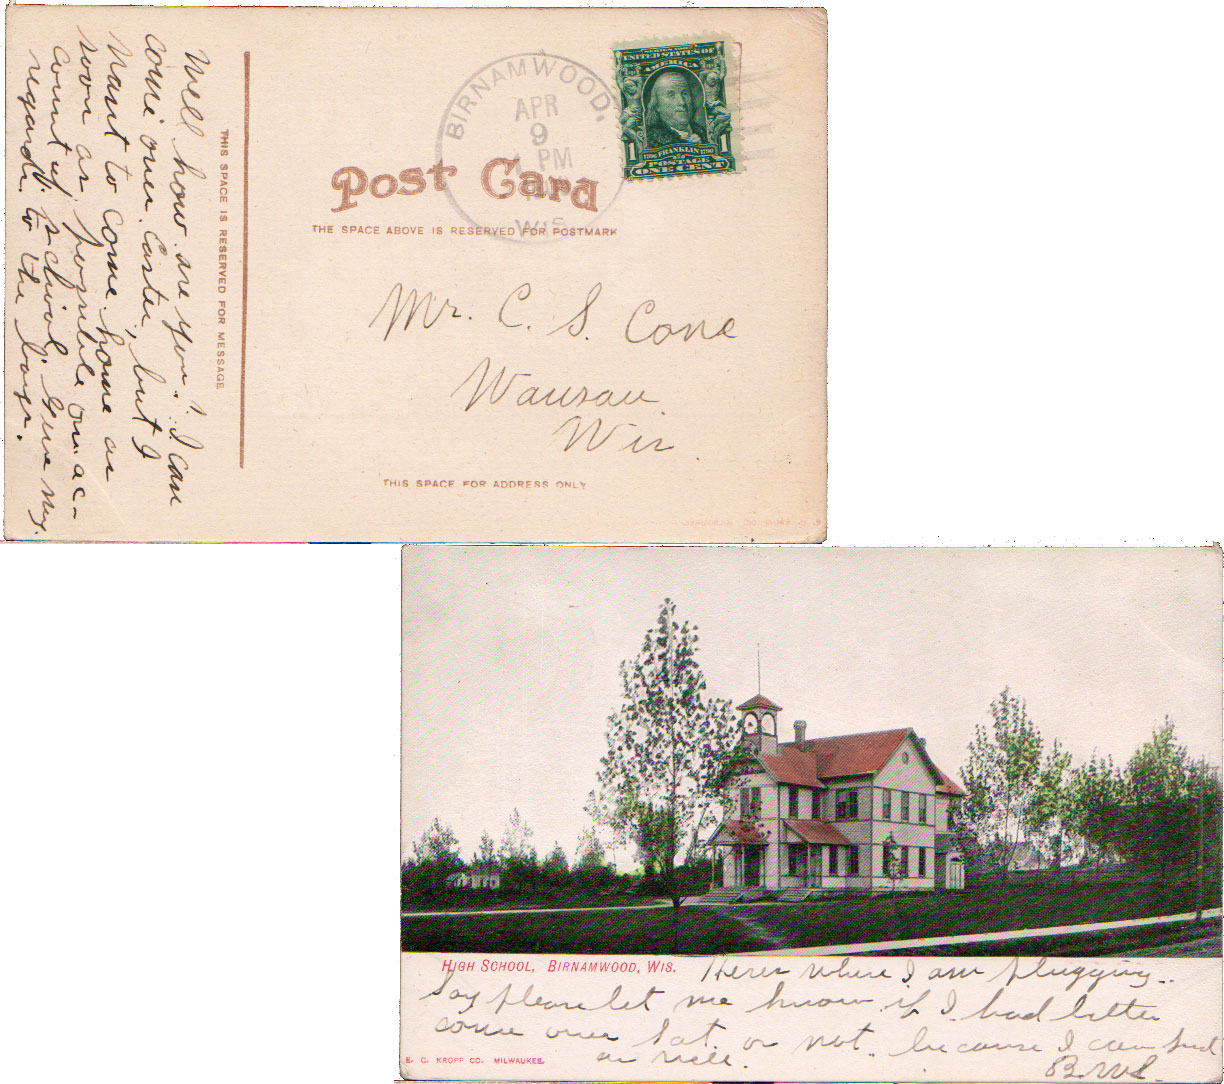 Well how are you? I can
come over Easter, but I
want to come home as
soon as possible on ac-
count of school. Give my
regards to the boys.
THIS SPACE IS RESERVED FOR MESSAGE
BIRNAMWOOD.
APR
9
1 PM
WIS
SERIES 1902
UNITED STATES OF
AMERICA
1706 FRANKLIN 1790
1 1
POSTAGE
ONE CENT
Post Card
THE SPACE ABOVE IS RESERVED FOR POSTMARK
Mr. C. S. Cone
Wausau
Wis
THIS SPACE FOR ADDRESS ONLY
HIGH SCHOOL, BIRNAMWOOD, WIS.
Heres where I am plugging..
Say please let me know if I had better
come over Sat. or not. because I can
as well.
E. C. KROPP CO. MILWAUKEE.